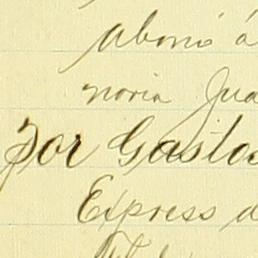 abonó á
noria Jua
Por Gastos
Express d